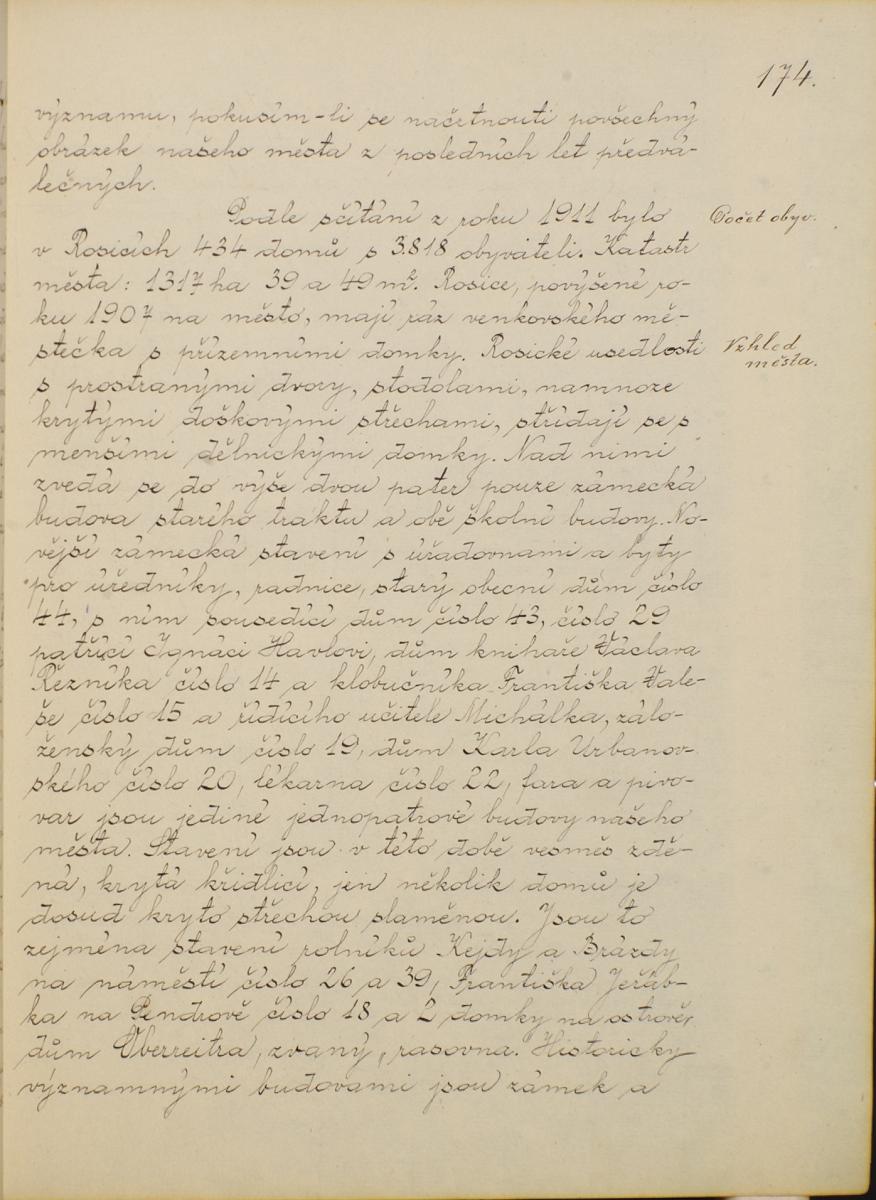 174.
významu, pokusím-li se načrtnouti povšechný
obrázek našeho města z posledních let předvá-
lečných.
Podle sčítání z roku 1911 bylo
Počet obyv.
v Rosicích 434 domů s 3.818 obyvateli. Katastr
města: 1317 ha 39 a 49 m². Rosice, povýšené ro-
ku 1907 na město, mají ráz venkovského mě-
stečka s přízemními domky. Rosické usedlosti
Vzhled
města.
s prostranými dvory, stodolami, namnoze
krytými doškovými střechami, střídají se s
menšími dělnickými domky. Nad nimi
zvedá se do výše dvou pater pouze zámecká
budova starího traktu a obě školní budovy. No-
vější zámecká stavení s úřadovnami a byty
pro úředníky, radnice, starý obecní dům číslo
44, s ním sousedící dům číslo 43, číslo 29
patřící Ignáci Havlovi, dům knihaře Václava
Řezníka číslo 14 a klobučníka Františka Vale-
še číslo 15 a řídícího učitele Michálka, zálo-
ženský dům číslo 19, dům Karla Urbanov-
ského číslo 20, lékarna číslo 22, fara a pivo-
var jsou jediné jednopatrové budovy našeho
města. Stavení jsou v této době vesměs zdě-
ná, krytá křidlicí, jen několik domů je
dosud kryto střechou slaměnou. Jsou to
zejména stavení rolníků Kejdy a Brázdy
na náměstí číslo 26 a 39, Františka Jeřáb-
ka na Pendrově číslo 18 a 2 domky na ostrově,
dům Oberreitra, zvaný „rasovna. Historicky
významnými budovami jsou zámek a